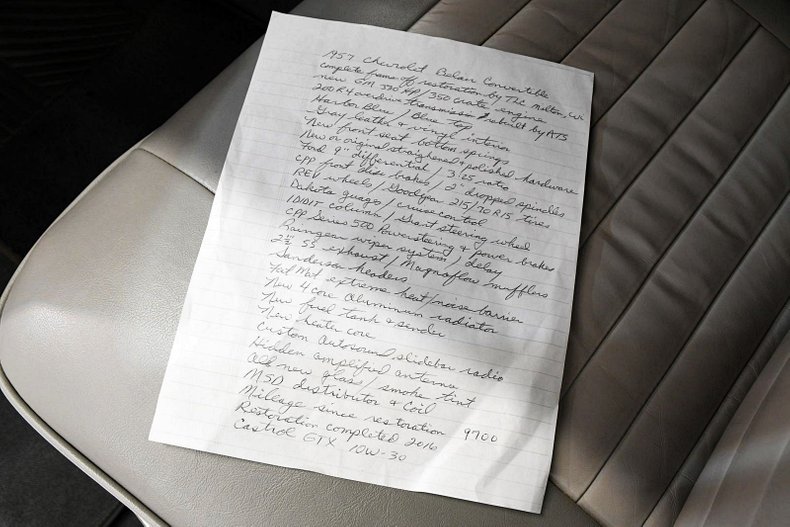 1957 Chevrolet Belair Convertible
complete frame off restoration by TLC Melton, WI
new GM 330 HP / 350 crate engine
200 R4 overdrive transmission rebuilt by ATS
Harbor Blue / Blue top
Gray leather & vinyl interior
New front seat bottom springs
New or original straighened & polished hardware
Ford 9" differential / 3:25 ratio
CPP front disc brakes / 2" dropped spindles
REV wheels / Goodyear 215/70 R15 tires
Dakota guages / cruise control
IDIDIT column / Grant steering wheel
CPP Series 500 Powersteering & power brakes
Raingear wiper system / delay
2½ SS exhaust / Magnaflow mufflers
Sanderson headers
Mat extreme heat/noise barrier
New 4 core aluminum radiator
New fuel tank & sender
New heater core
Custom Autosound slidebar radio
Hidden amplified antenna
All new glass / smoke tint
MSD distributor & Coil
Mileage since restoration 9700
Restoration completed 2016
Castrol GTX 10W-30